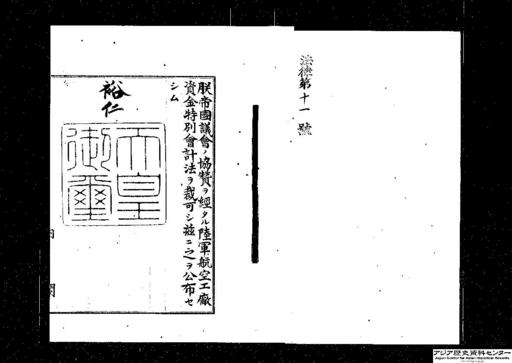 法律第十一號
朕帝國議會ノ協贊ヲ經タル陸軍航空工廠
資金特別會計法ヲ裁可シ茲ニ之ヲ公布セ
シム
裕仁
天皇
御璽
内閣
アジア歴史資料センター
Japan Center for Asian Historical Records